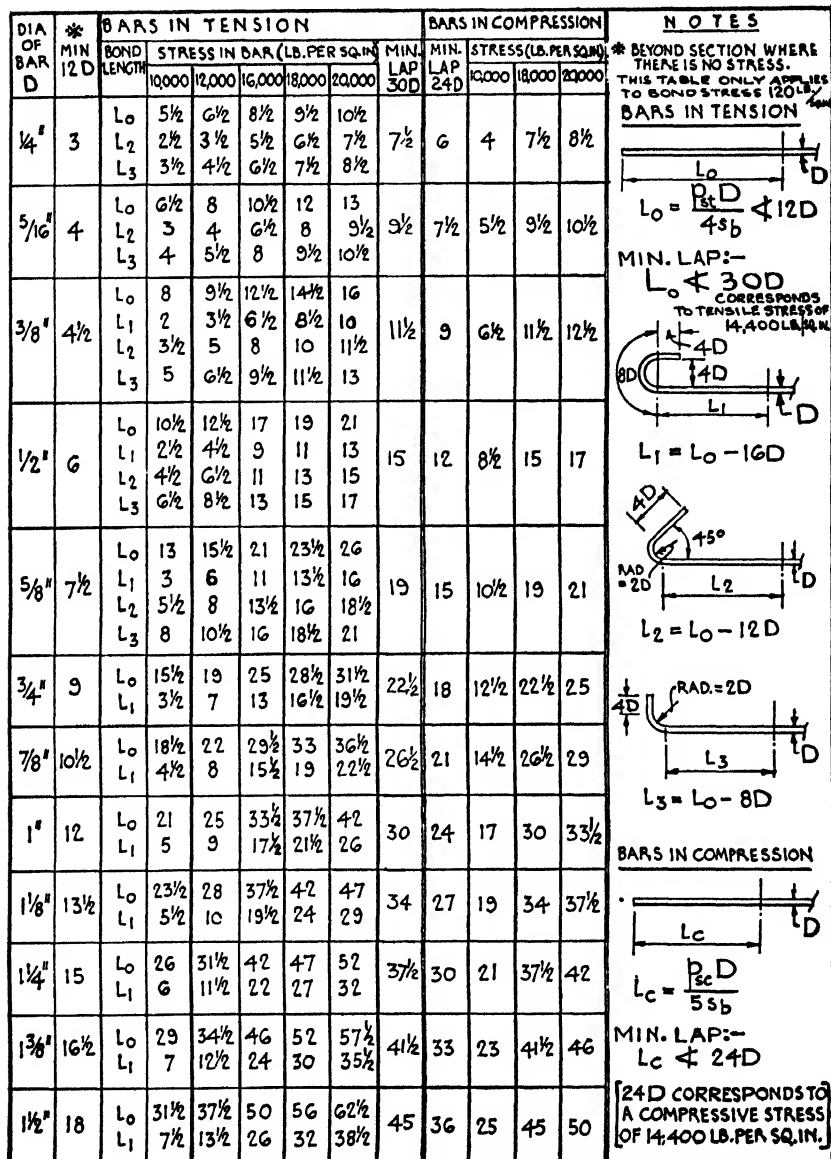 DIA OF BAR D | * MIN 12D | BARS IN TENSION | BARS IN COMPRESSION
BOND LENGTH | STRESS IN BAR (LB. PER SQ.IN) | MIN. LAP 30D | MIN. LAP 24D | STRESS (LB. PER SQ.IN)
10,000 | 12,000 | 16,000 | 18,000 | 20,000 | 10,000 | 18,000 | 20,000
1/4" | 3 | L₀ | 5½ | 6½ | 8½ | 9½ | 10½ | 7½ | 6 | 4 | 7½ | 8½
L₂ | 2½ | 3½ | 5½ | 6½ | 7½
L₃ | 3½ | 4½ | 6½ | 7½ | 8½
5/16" | 4 | L₀ | 6½ | 8 | 10½ | 12 | 13 | 9½ | 7½ | 5½ | 9½ | 10½
L₂ | 3 | 4 | 6½ | 8 | 9½
L₃ | 4 | 5½ | 8 | 9½ | 10½
3/8" | 4½ | L₀ | 8 | 9½ | 12½ | 14½ | 16 | 11½ | 9 | 6½ | 11½ | 12½
L₁ | 2 | 3½ | 6½ | 8½ | 10
L₂ | 3½ | 5 | 8 | 10 | 11½
L₃ | 5 | 6½ | 9½ | 11½ | 13
1/2" | 6 | L₀ | 10½ | 12½ | 17 | 19 | 21 | 15 | 12 | 8½ | 15 | 17
L₁ | 2½ | 4½ | 9 | 11 | 13
L₂ | 4½ | 6½ | 11 | 13 | 15
L₃ | 6½ | 8½ | 13 | 15 | 17
5/8" | 7½ | L₀ | 13 | 15½ | 21 | 23½ | 26 | 19 | 15 | 10½ | 19 | 21
L₁ | 3 | 6 | 11 | 13½ | 16
L₂ | 5½ | 8 | 13½ | 16 | 18½
L₃ | 8 | 10½ | 16 | 18½ | 21
3/4" | 9 | L₀ | 15½ | 19 | 25 | 28½ | 31½ | 22½ | 18 | 12½ | 22½ | 25
L₁ | 3½ | 7 | 13 | 16½ | 19½
7/8" | 10½ | L₀ | 18½ | 22 | 29½ | 33 | 36½ | 26½ | 21 | 14½ | 26½ | 29
L₁ | 4½ | 8 | 15½ | 19 | 22½
1" | 12 | L₀ | 21 | 25 | 33½ | 37½ | 42 | 30 | 24 | 17 | 30 | 33½
L₁ | 5 | 9 | 17½ | 21½ | 26
1⅛" | 13½ | L₀ | 23½ | 28 | 37½ | 42 | 47 | 34 | 27 | 19 | 34 | 37½
L₁ | 5½ | 10 | 19½ | 24 | 29
1¼" | 15 | L₀ | 26 | 31½ | 42 | 47 | 52 | 37½ | 30 | 21 | 37½ | 42
L₁ | 6 | 11½ | 22 | 27 | 32
1⅜" | 16½ | L₀ | 29 | 34½ | 46 | 52 | 57½ | 41½ | 33 | 23 | 41½ | 46
L₁ | 7 | 12½ | 24 | 30 | 35½
1½" | 18 | L₀ | 31½ | 37½ | 50 | 56 | 62½ | 45 | 36 | 25 | 45 | 50
L₁ | 7½ | 13½ | 26 | 32 | 38½
NOTES
* BEYOND SECTION WHERE
THERE IS NO STRESS.
THIS TABLE ONLY APPLIES
TO BOND STRESS 120 LB/SQ.IN
BARS IN TENSION
L₀
D
L₀ = p_st D / 4s_b ≮ 12D
MIN. LAP:-
L₀ ≮ 30D
CORRESPONDS
TO TENSILE STRESS OF
14,400 LB/SQ.IN
4D
8D
4D
L₁
D
L₁ = L₀ - 16D
4D
45°
RAD = 2D
L₂
D
L₂ = L₀ - 12D
RAD. = 2D
4D
L₃
D
L₃ = L₀ - 8D
BARS IN COMPRESSION
D
Lc
Lc = p_sc D / 5s_b
MIN. LAP:-
Lc ≮ 24D
[24D CORRESPONDS TO
A COMPRESSIVE STRESS
OF 14,400 LB. PER SQ. IN.]